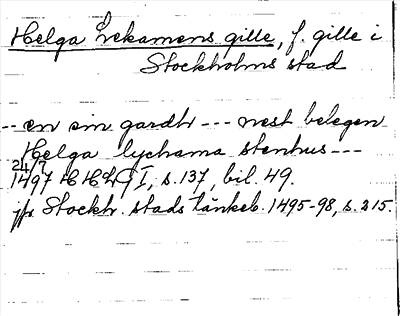 Helga Lekamens gille, f. gille i
Stockholms stad
-- en sin gardh --- nest belegen
Helga lychama stenhus ---
24/7
1497 HHLG I, s. 137, bil. 49.
jfr Stockh. stads tänkeb. 1495-98, s. 215.